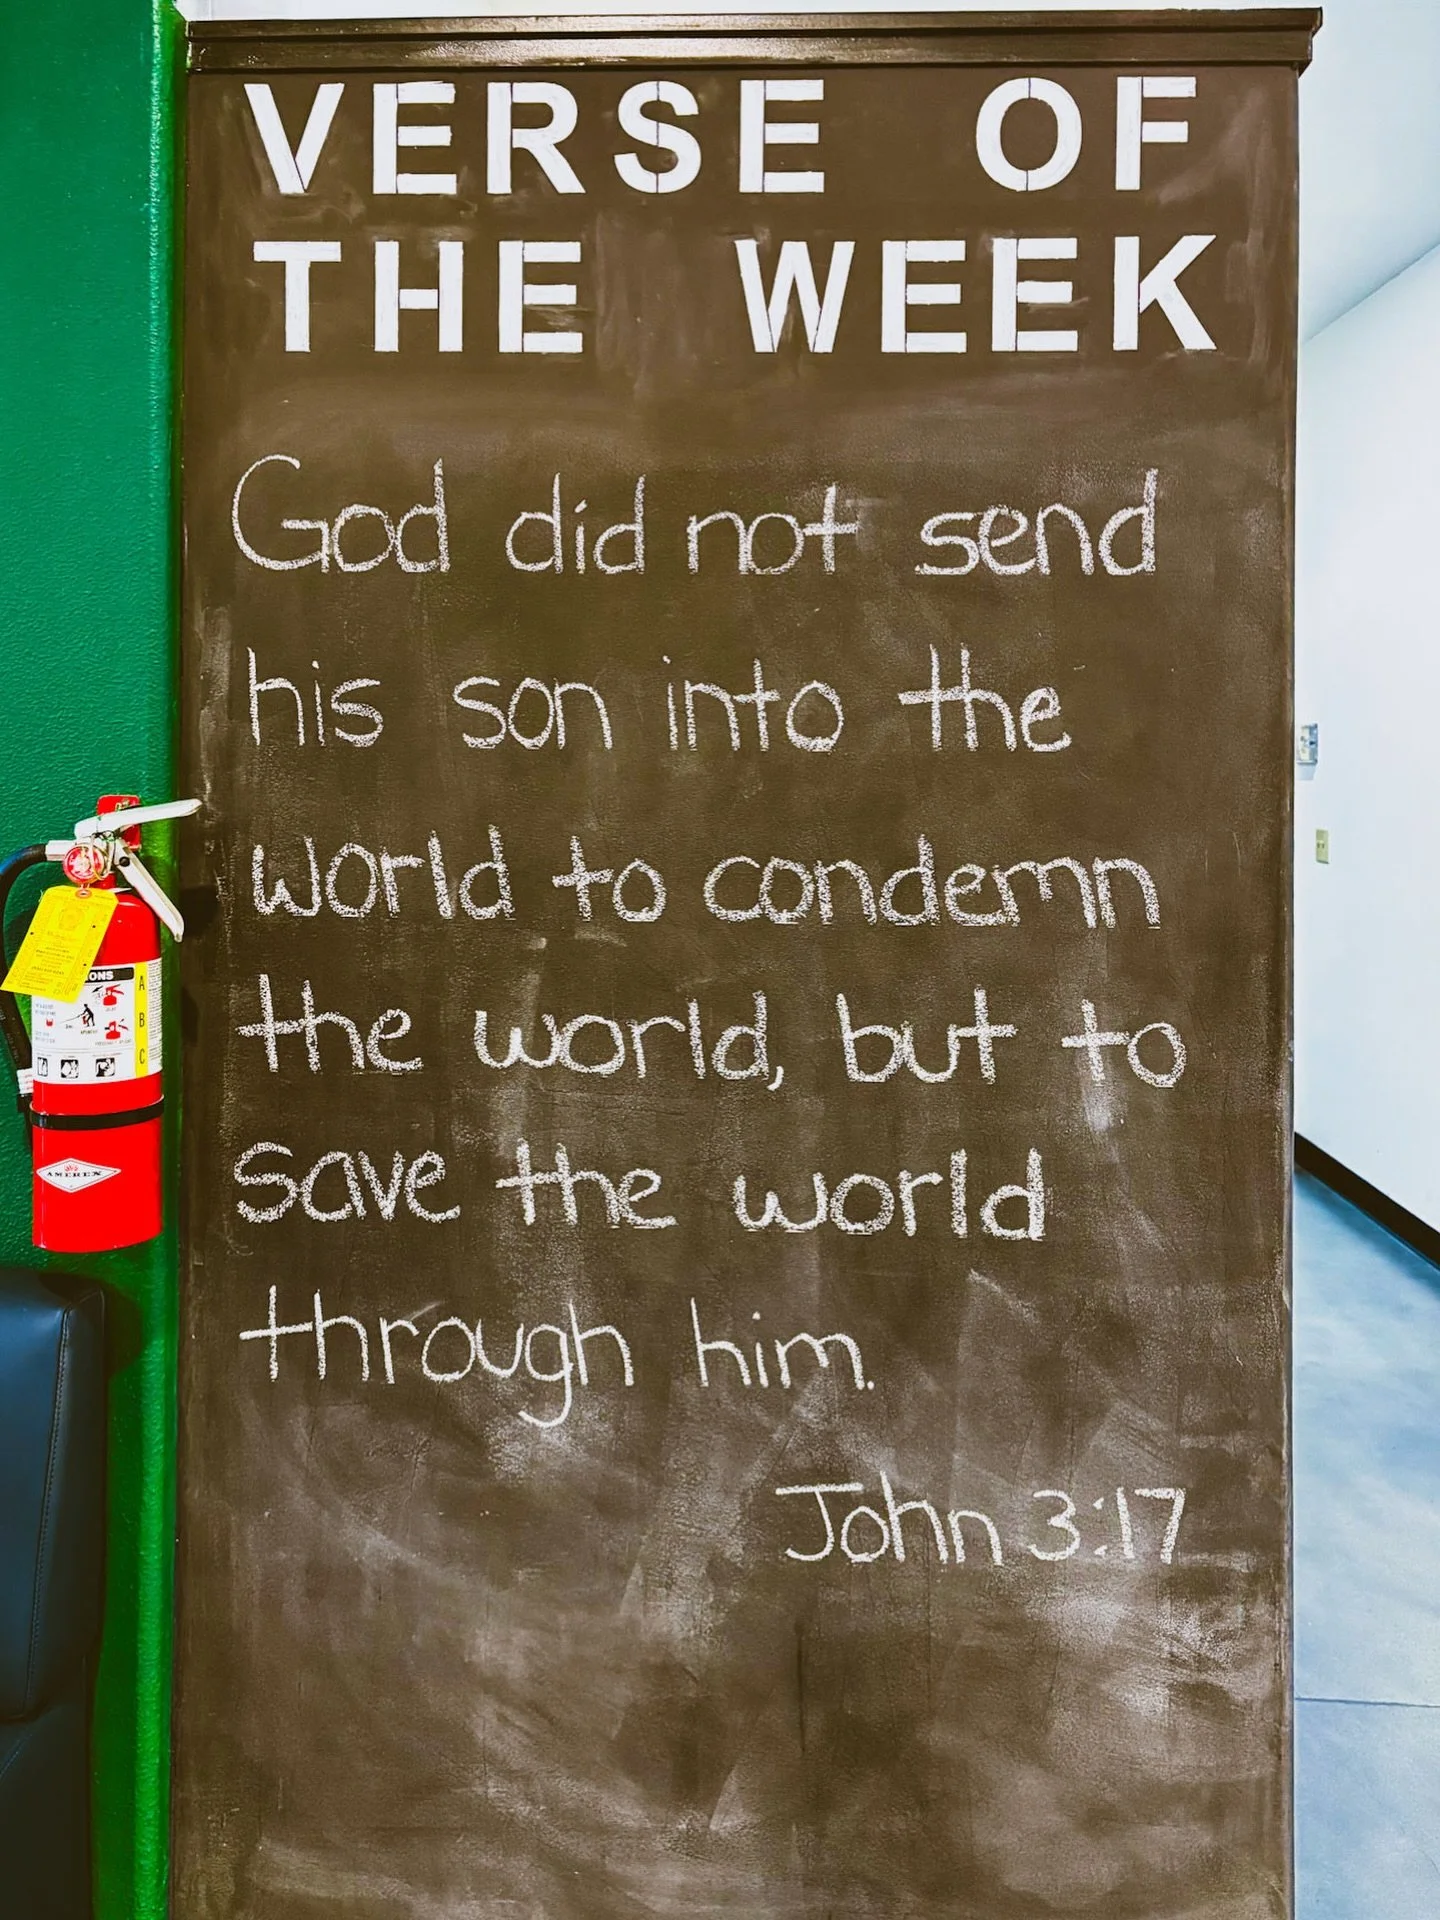 VERSE OF
THE WEEK
God did not send
his son into the
world to condemn
the world, but to
save the world
through him.
John 3:17
ONS
A
B
C
AMEREX